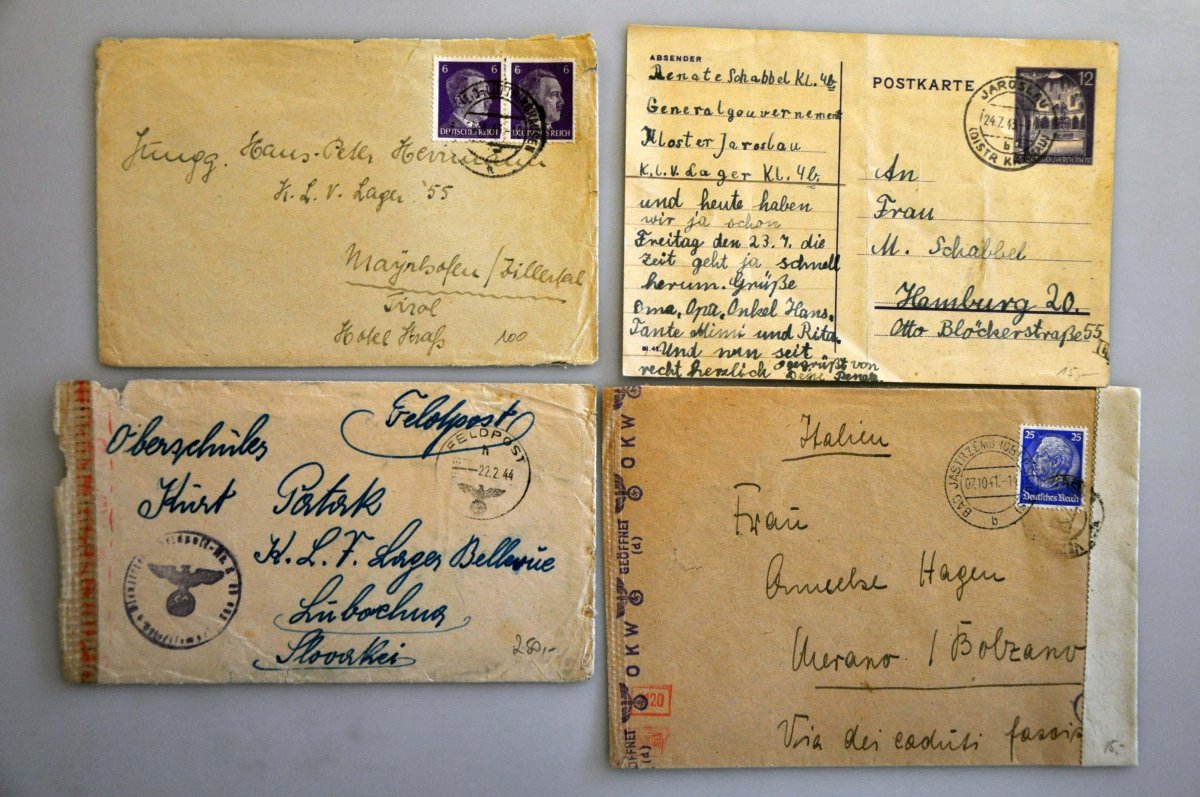 6 6
DEUTSCHES REICH
Jungg. Hans-Peter Herrmann
K. L. V. Lager 55
Mayrhofen / Zillertal
Tirol
Hotel Straß
100
ABSENDER
Renate Schabbel Kl. 4b
Generalgouvernement
Kloster Jaroslau
K.L.V. Lager Kl. 4b.
und heute haben
wir ja schon
Freitag den 23.7. die
Zeit geht ja schnell
herum. Grüße
Oma, Opa, Onkel Hans,
Tante Mimi und Rita.
Und nun seit
recht herzlich gegrüßt von
Renate
POSTKARTE
12
JAROSLAU
24.7.43
b
An
Frau
M. Schabbel
Hamburg 20.
Otto Blöckerstraße 55
15,-
Feldpost
FELDPOST
h
22.2.44
Oberschüler
Kurt Patak
K. L. V. Lager Bellevue
Lubochna
Slovakei
280,-
Italien
BAD JASTRZEMB
07.10.41
b
25 25
Deutsches Reich
Frau
Hagen
Merano / Bolzano
Via dei caduti fascis
GEÖFFNET
(d)
OKW
GEÖFFNET
(d)
OKW
120
15,-